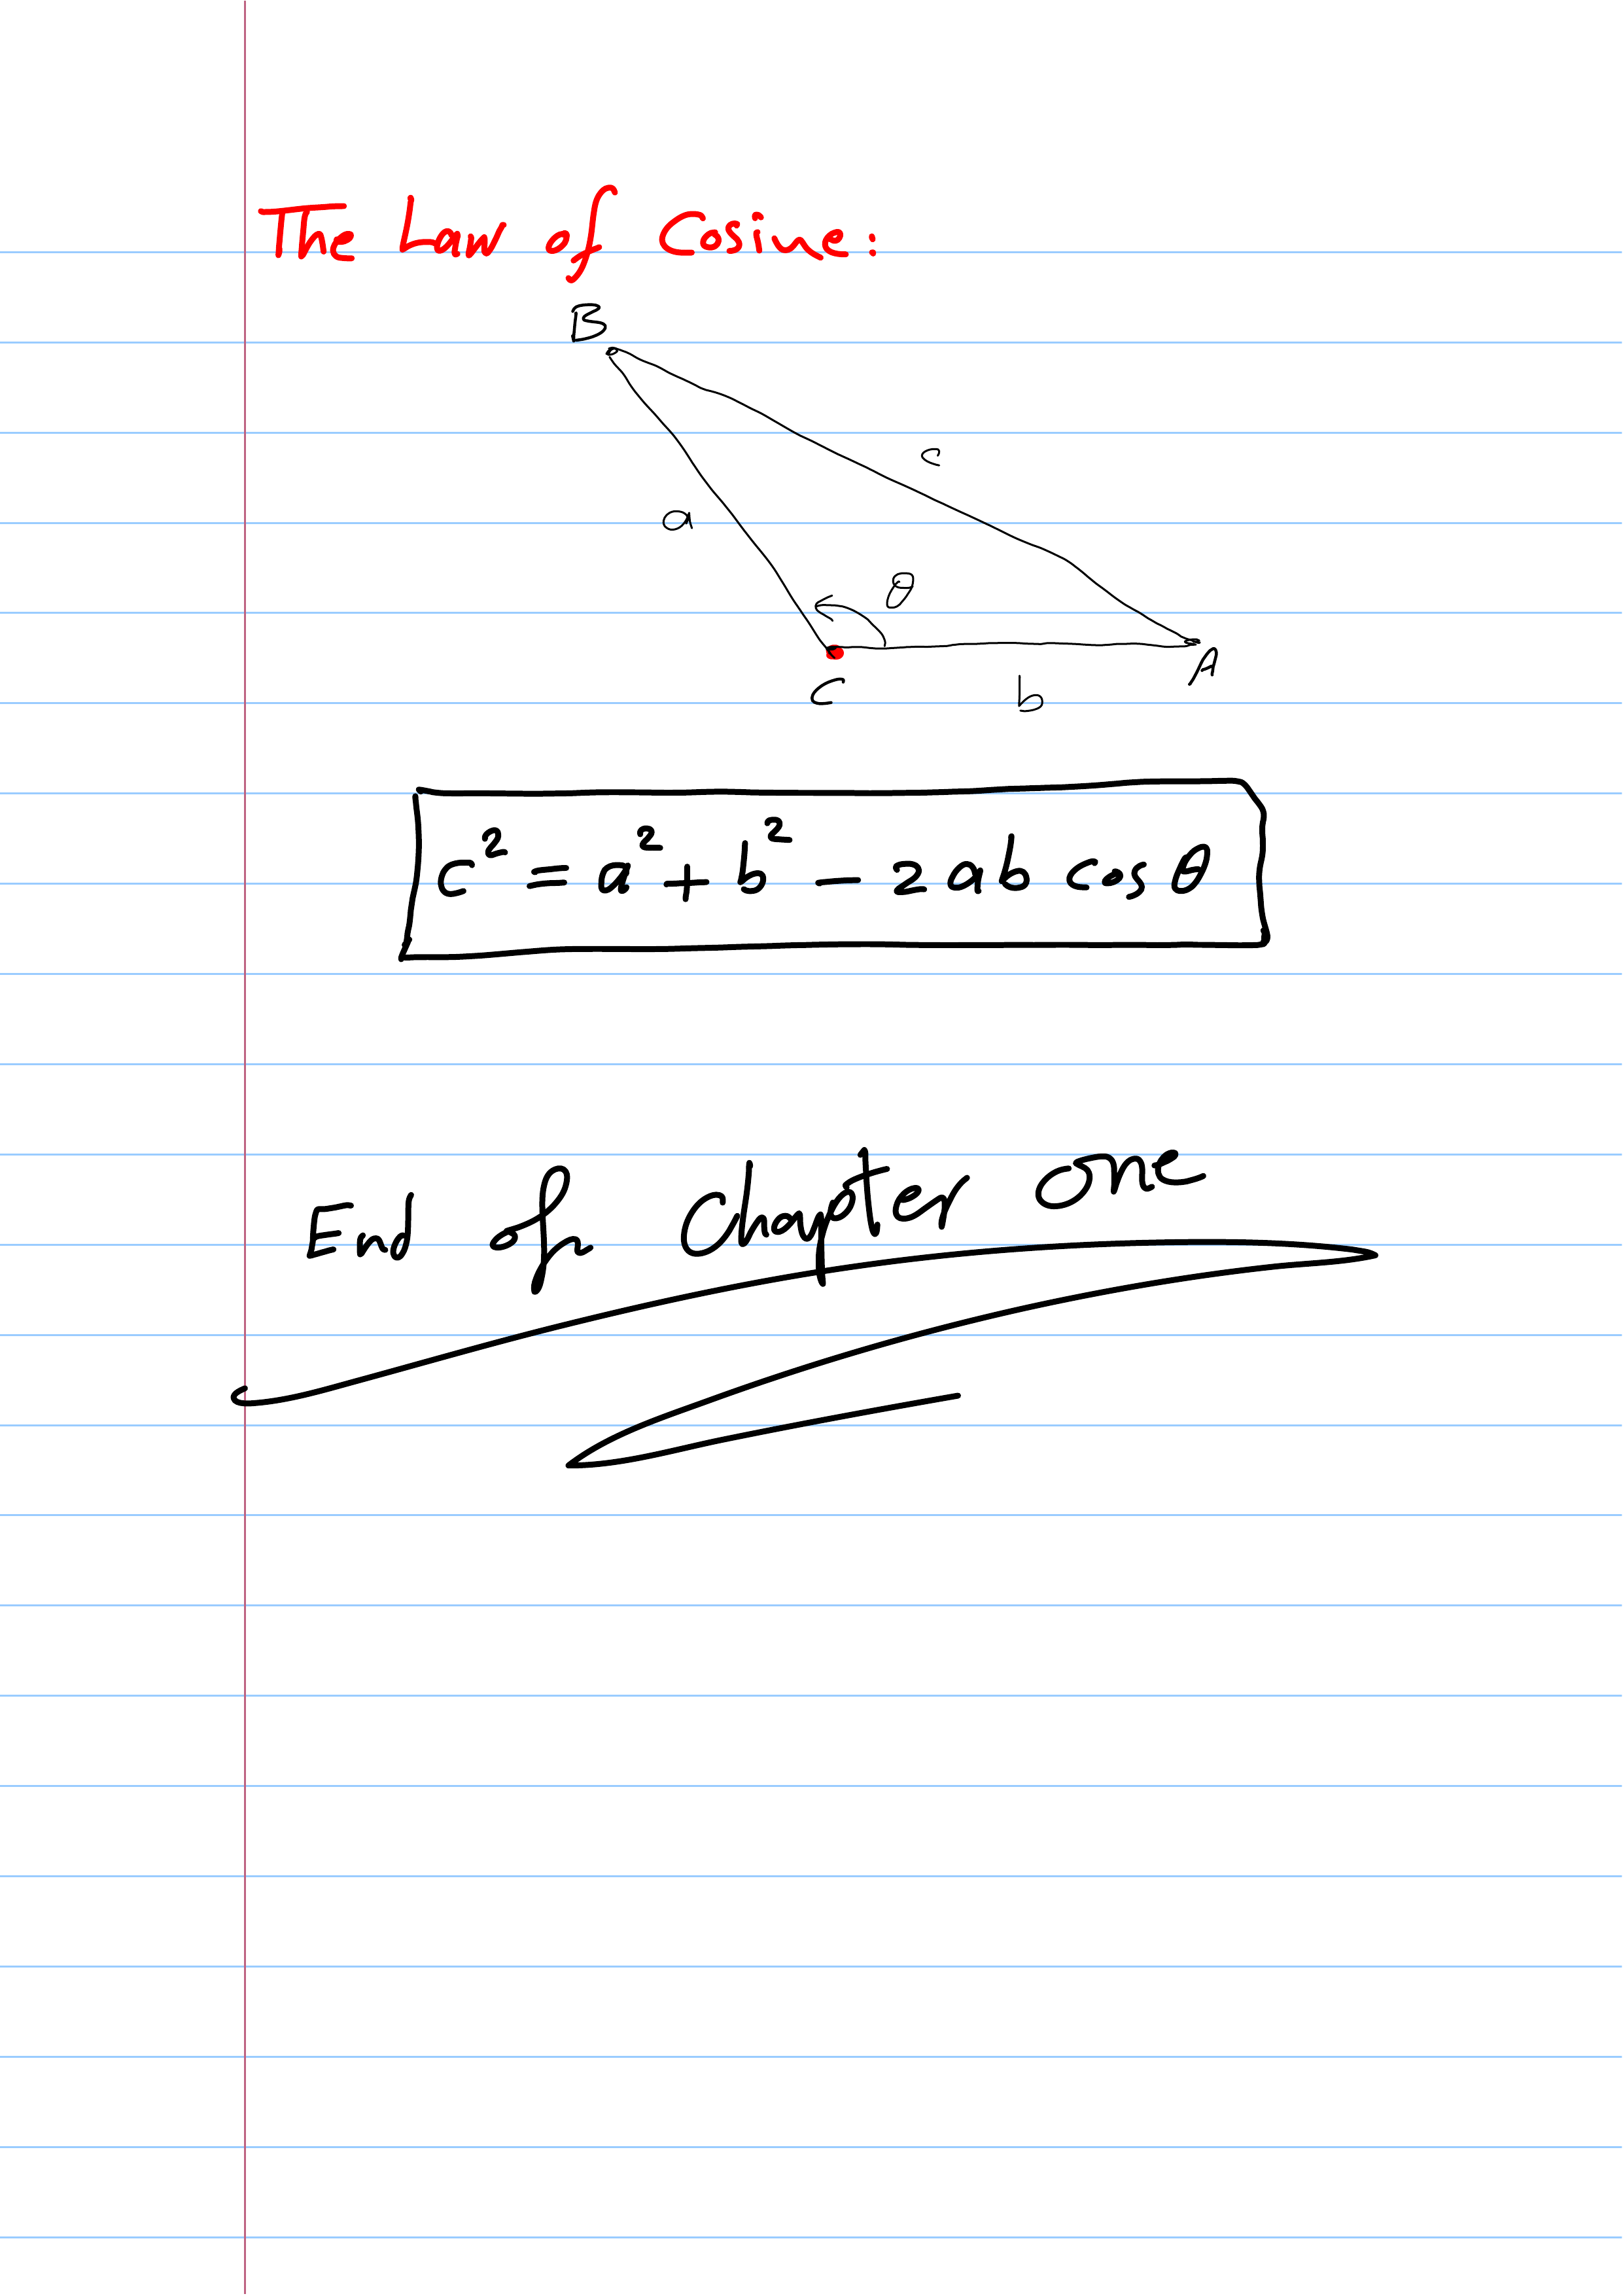 The Law of Cosine:
B
c
a
θ
C
b
A
c² = a² + b² - 2ab cos θ
End of Chapter one